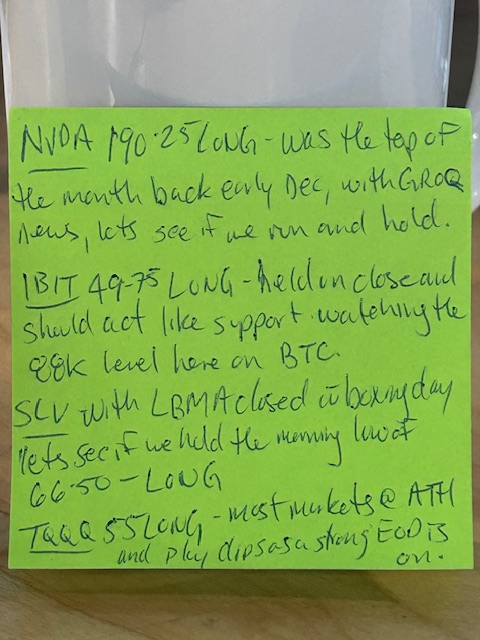 NVDA 190.25 LONG - was the top of
the month back early Dec, with GROQ
news, lets see if we run and hold.
IBIT 49-75 LONG - held on close and
should act like support. watching the
88K level here on BTC.
SLV with LBMA closed boxing day
lets see if we hold the morning low of
66.50 - LONG
TQQQ 55 LONG - most markets @ ATH
and play dips as a strong EOD is
on.